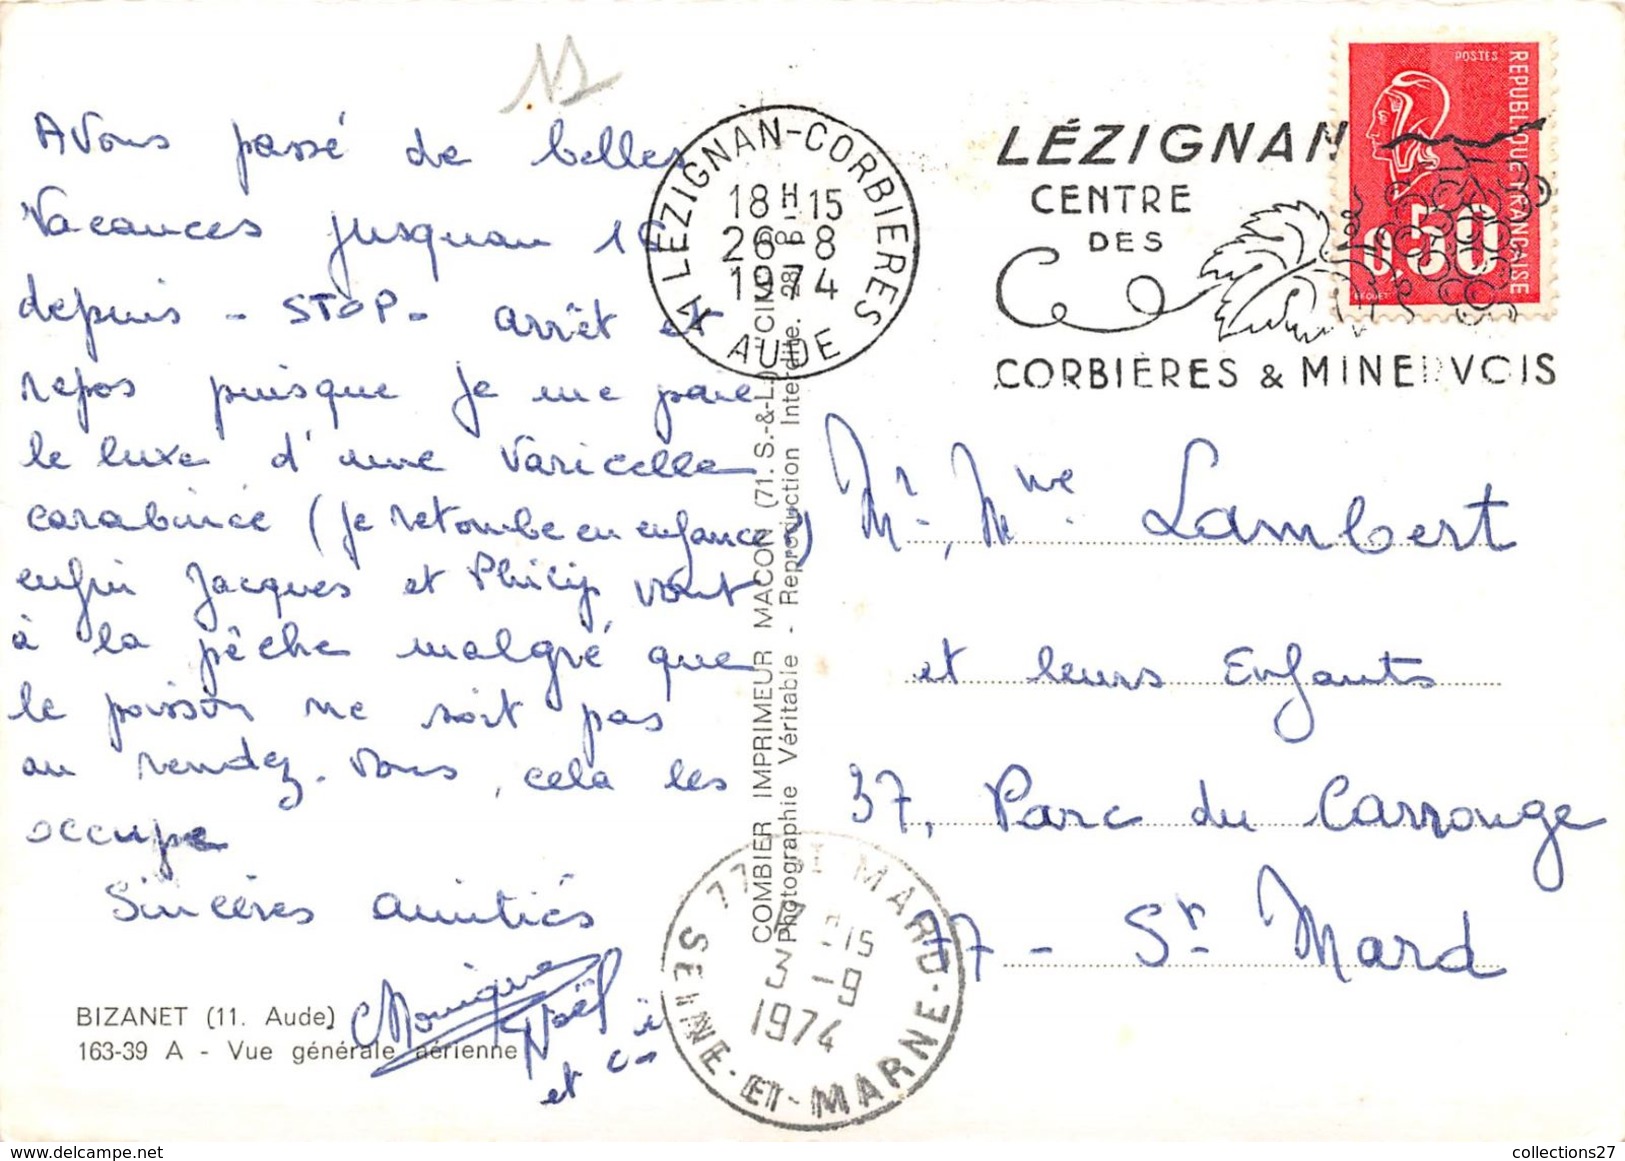 Avons passé de belles
Vacances jusquau 16
depuis - STOP - arrêt et
repos puisque je me paie
le luxe d'une varicelle
carabinée (je retombe en enfance?)
enfin Jacques et Philip vont
à la pêche malgré que
le poisson ne soit pas
au rendez-vous, cela les
occupe
Sincères amitiés
Monique
Noël
et Cie
BIZANET (11. Aude)
163-39 A - Vue générale aérienne
COMBIER IMPRIMEUR MACON (71. S.-&-L.)
Photographie Véritable - Reproduction Interdite.
11 LÉZIGNAN-CORBIERES
18 H 15
26-8
1974
AUDE
LÉZIGNAN
CENTRE
DES
CORBIÈRES & MINERVOIS
POSTES
REPUBLIQUE FRANÇAISE
0,50
BEQUET
Mr, Mme Lambert
et leurs Enfants
37, Parc du Carrouge
77 - St Mard
77 ST MARD
15
3-9
1974
SEINE-ET-MARNE
collections27